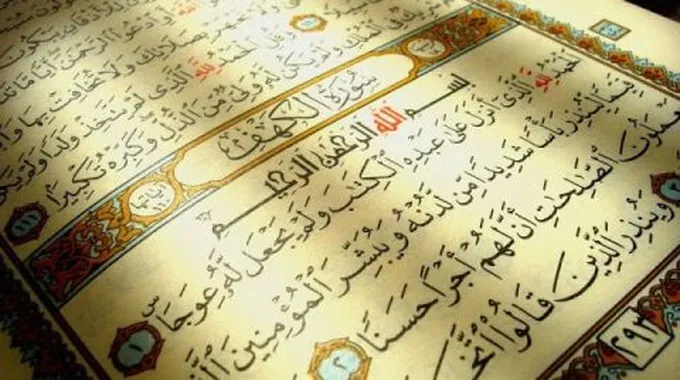 ٱدْعُوا۟ ٱلرَّحْمَٰنَ أَيًّا مَّا
بِصَلَاتِكَ وَلَا تُخَافِتْ بِهَا
ٱلْحَمْدُ لِلَّهِ ٱلَّذِى لَمْ يَتَّخِذْ وَلَدًا وَلَمْ يَكُن
وَلَمْ يَكُن لَّهُۥ وَلِىٌّ مِّنَ ٱلذُّلِّ وَكَبِّرْهُ تَكْبِيرًۢا ١١١
سُورَةُ ٱلْكَهْفِ
بِسْمِ ٱللَّهِ ٱلرَّحْمَٰنِ ٱلرَّحِيمِ
ٱلْحَمْدُ لِلَّهِ ٱلَّذِىٓ أَنزَلَ عَلَىٰ عَبْدِهِ ٱلْكِتَٰبَ وَلَمْ يَجْعَل لَّهُۥ عِوَجَا ۜ ١
لِّيُنذِرَ بَأْسًا شَدِيدًا مِّن لَّدُنْهُ وَيُبَشِّرَ ٱلْمُؤْمِنِينَ ٱلَّذِينَ
يَعْمَلُونَ ٱلصَّٰلِحَٰتِ أَنَّ لَهُمْ أَجْرًا حَسَنًا ٢
وَيُنذِرَ ٱلَّذِينَ قَالُوا۟ ٱتَّخَذَ
٢٩٣